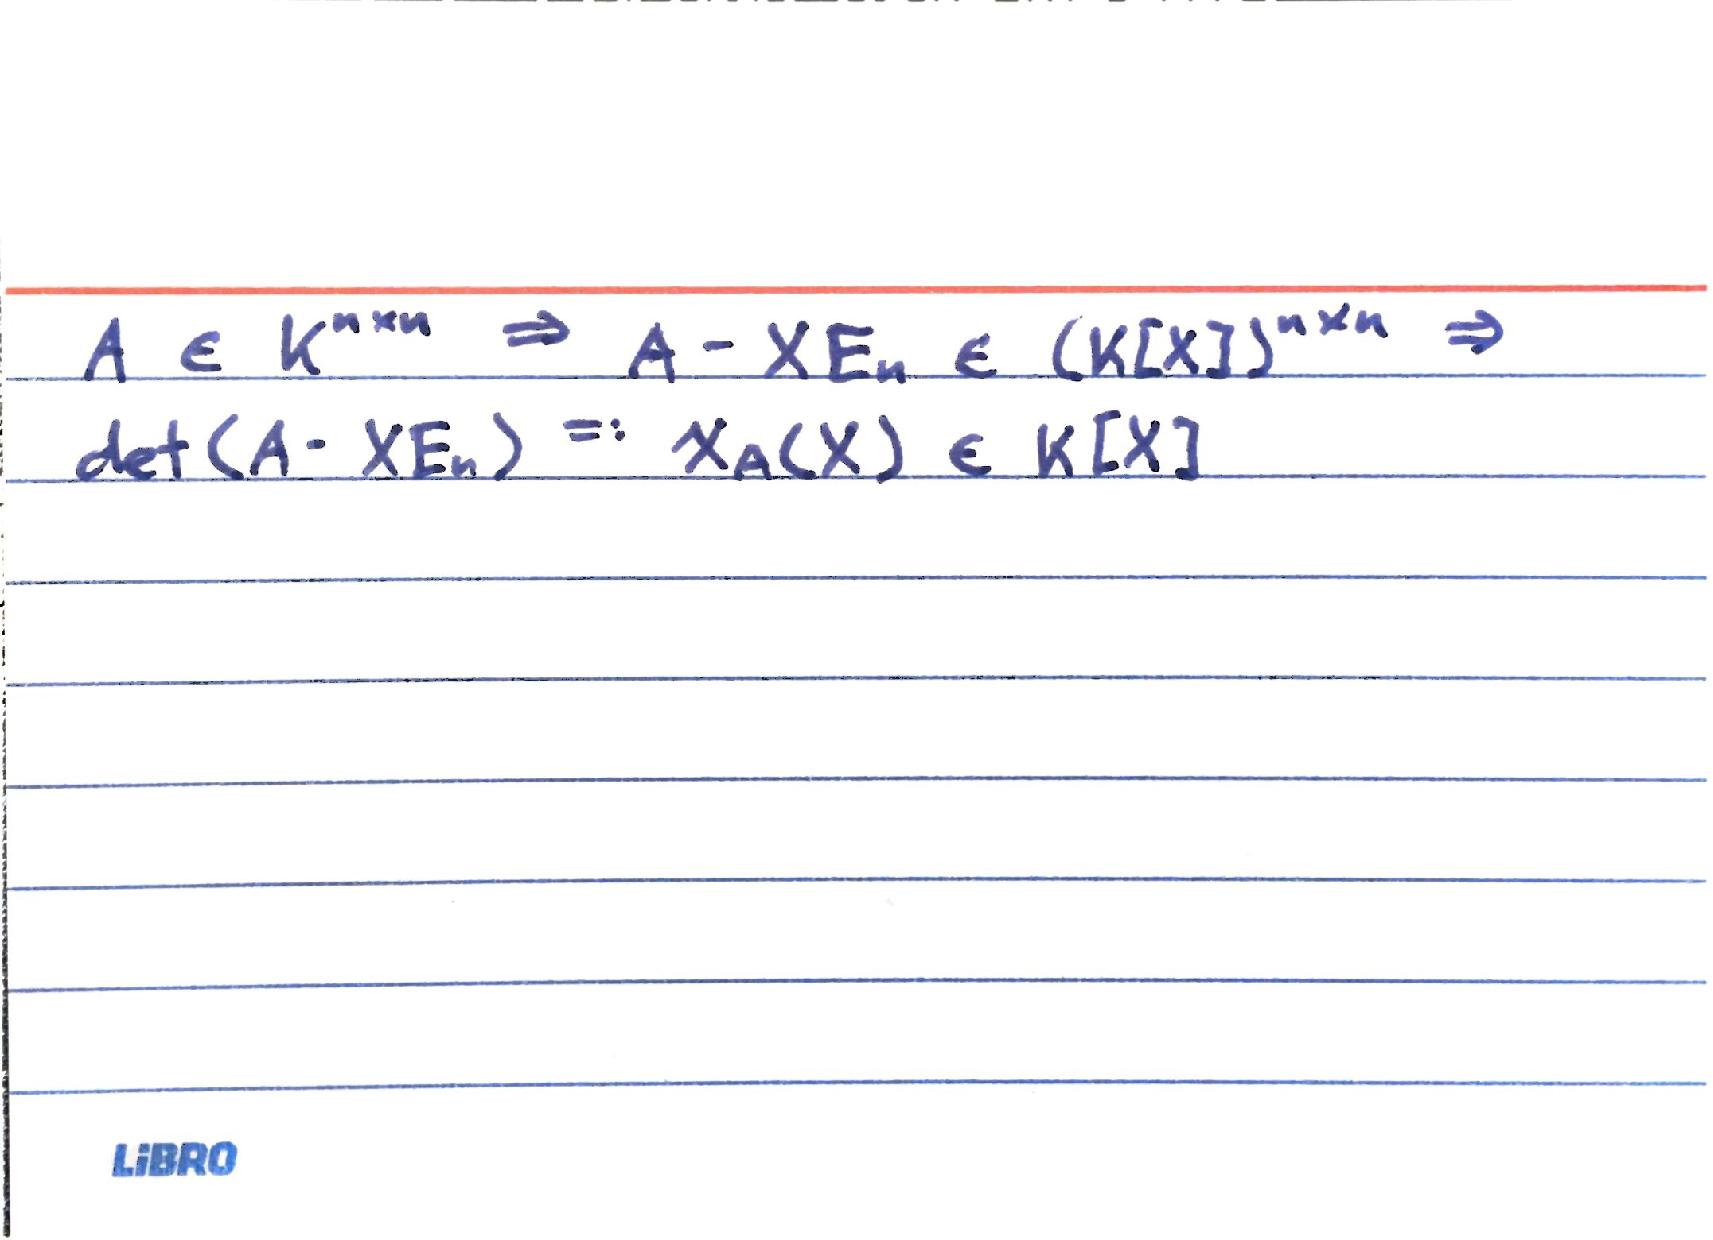 A ∈ K^{n×n} ⇒ A - XE_n ∈ (K[X])^{n×n} ⇒
det(A - XE_n) =: χ_A(X) ∈ K[X]
LiBRO